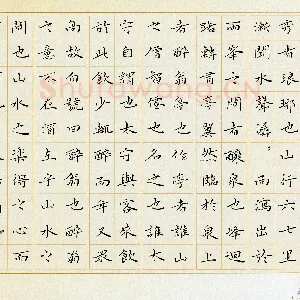 秀者琅琊也山行六七里
漸聞水聲潺潺而瀉出於
兩峰之間者釀泉也峰迴
路轉有亭翼然臨於泉上
者醉翁亭也作亭者誰山
之僧智僊也名之者誰太
守自謂也太守與客來飲
於此飲少輒醉而年又最
高故自號曰醉翁也醉翁
之意不在酒在乎山水之
間也山水之樂得之心而
Shufawang.CN